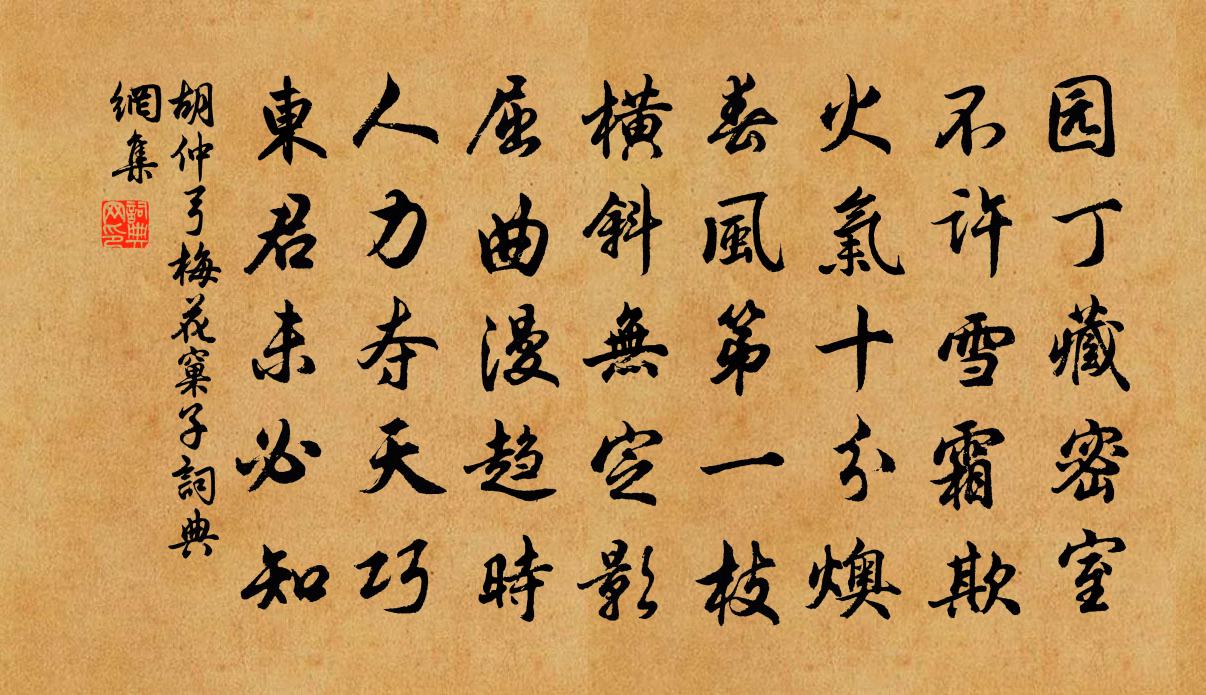 园丁藏密室
不许雪霜欺
火氣十分燠
春風第一枝
橫斜無定影
屈曲漫趋時
人力夺天巧
東君未必知
胡仲弓梅花窠子詞典
網集
詞典
网印